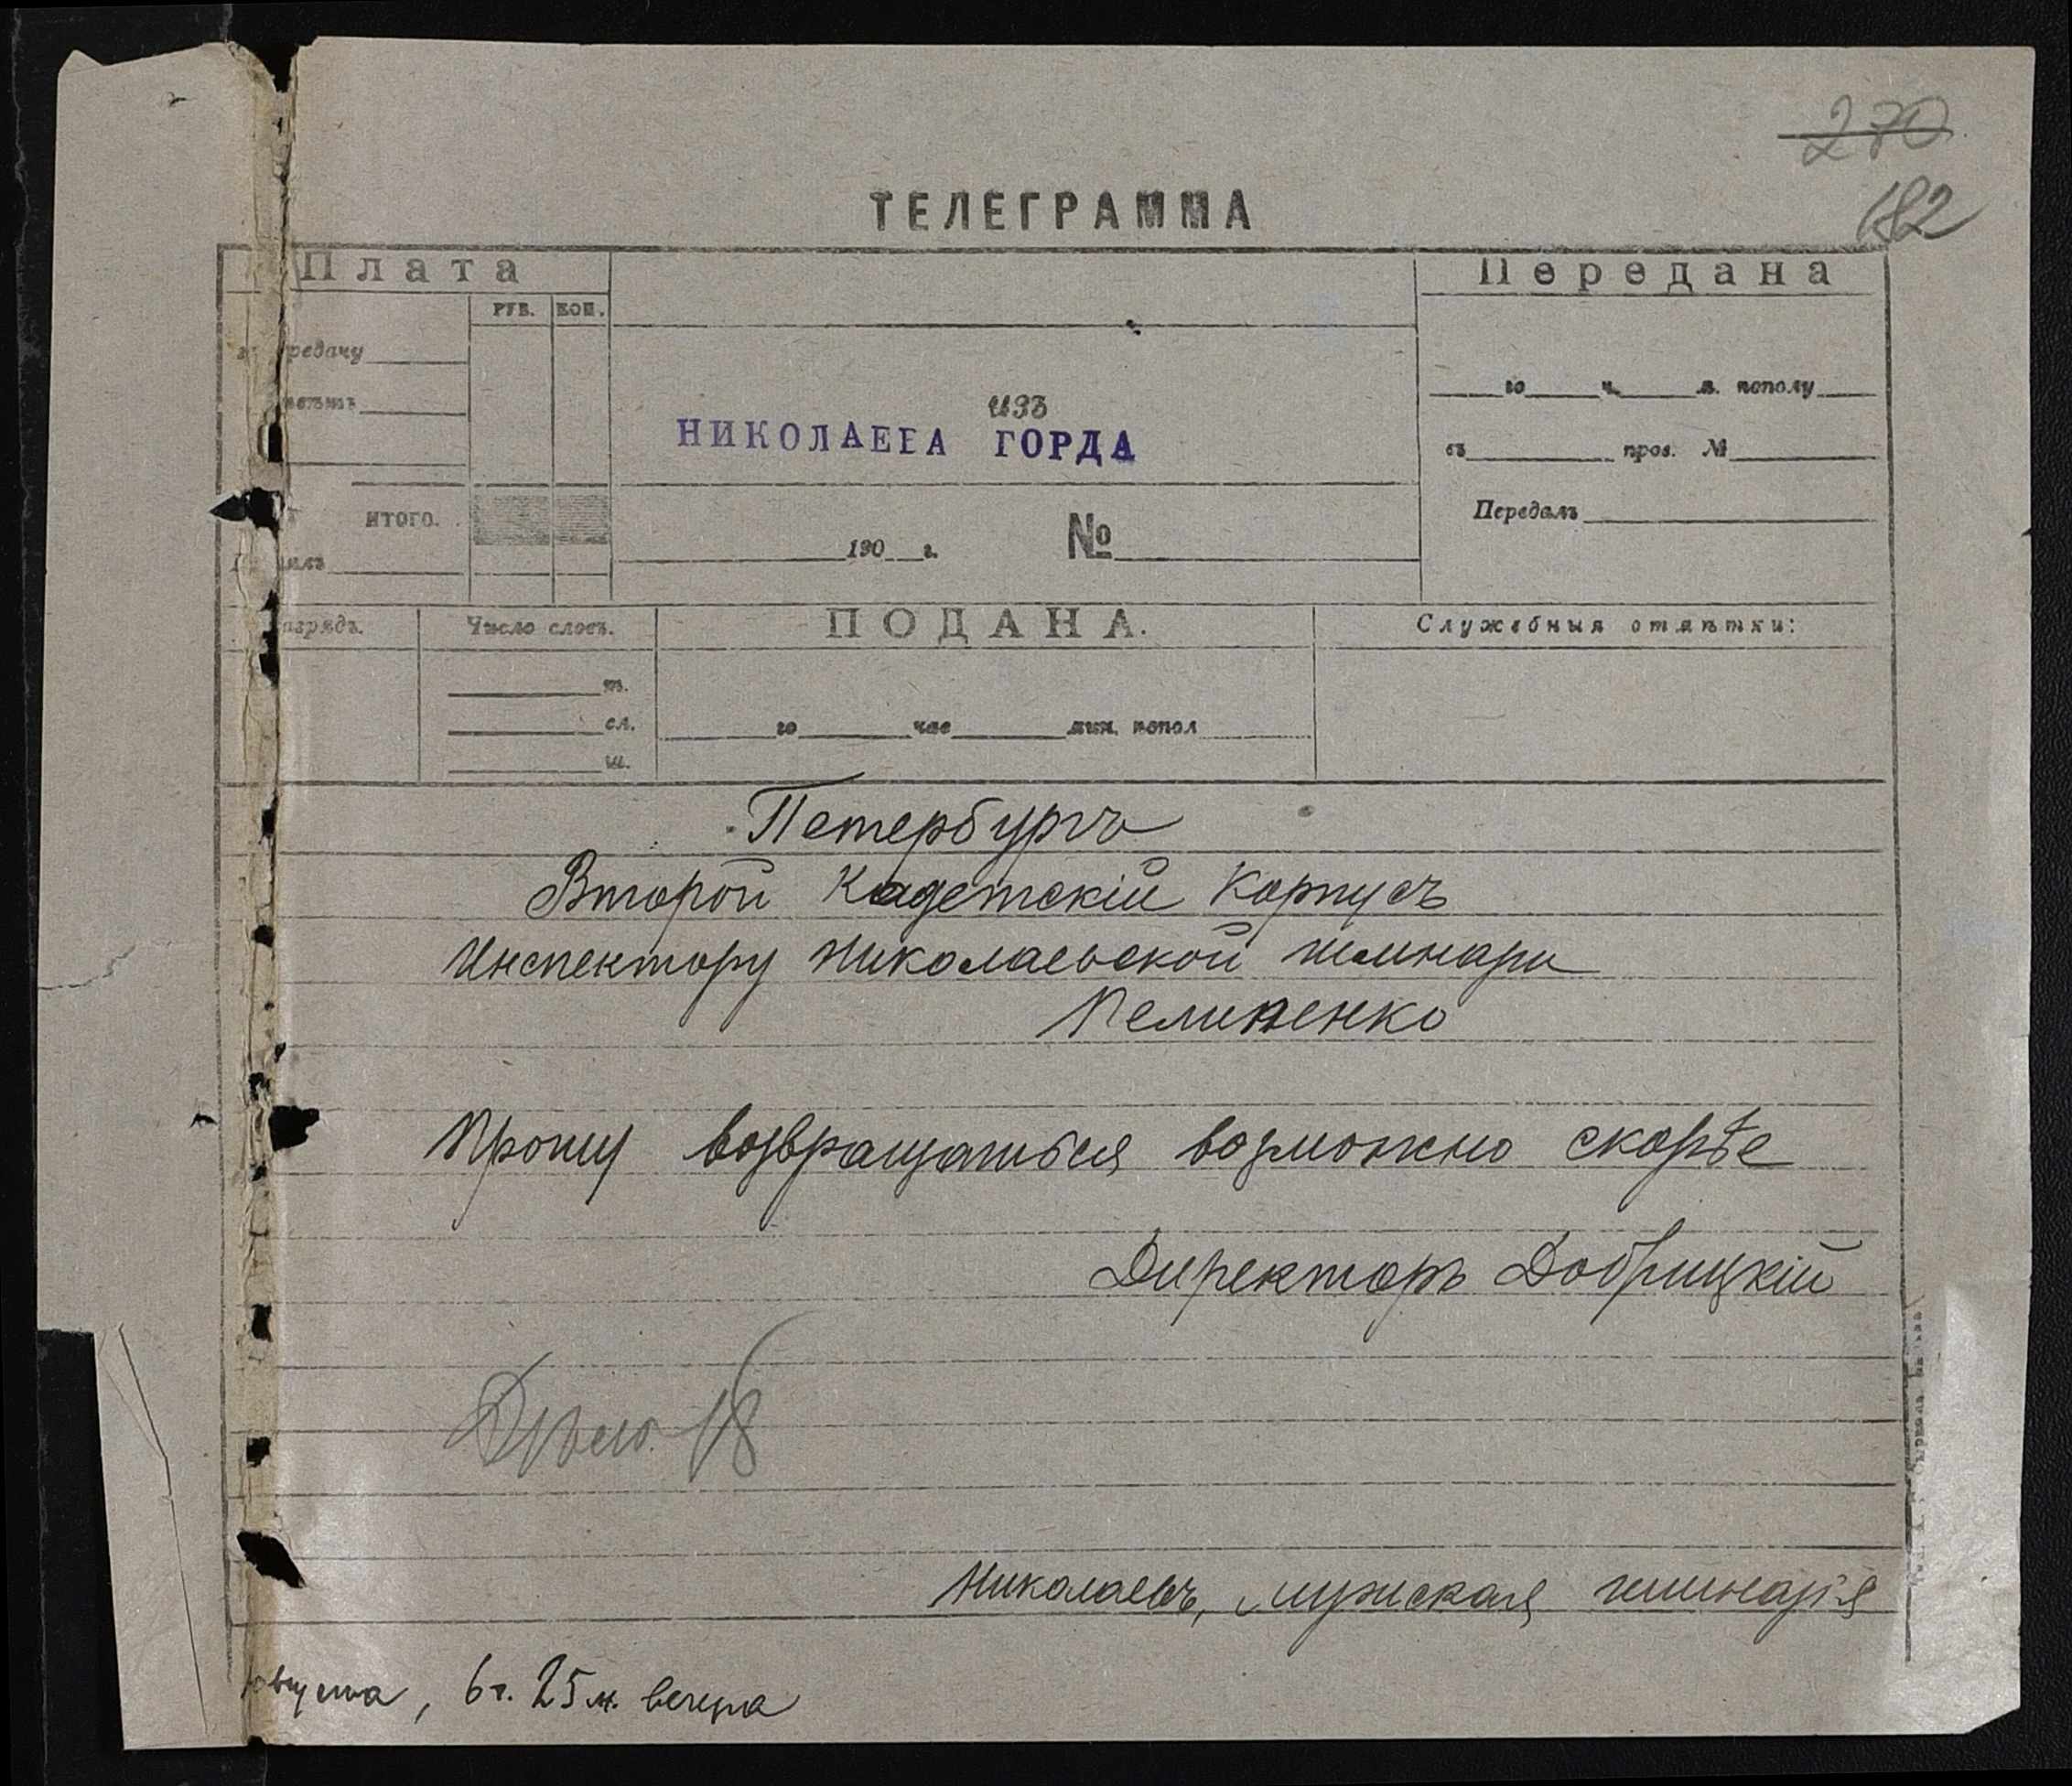 270
182
ТЕЛЕГРАММА
Плата
РУБ. КОП.
редачу
ИТОГО.
изъ
НИКОЛАЕВА ГОРДА
190 г. №
Передана
го ч. м. пополу
съ пров. №
Передалъ
азрядъ.
Число словъ.
сл.
ш.
ПОДАНА.
го час мин. попол
Служебныя отмѣтки:
Петербургъ
Второй Кадетскій Корпусъ
Инспектору Николаевской гимназіи
Пелипенко
Прошу возвращаться возможно скорѣе
Директоръ Добрицкій
Дѣло. 18
Николаевъ, мужская гимназія
августа, 6 ч. 25 м. вечера